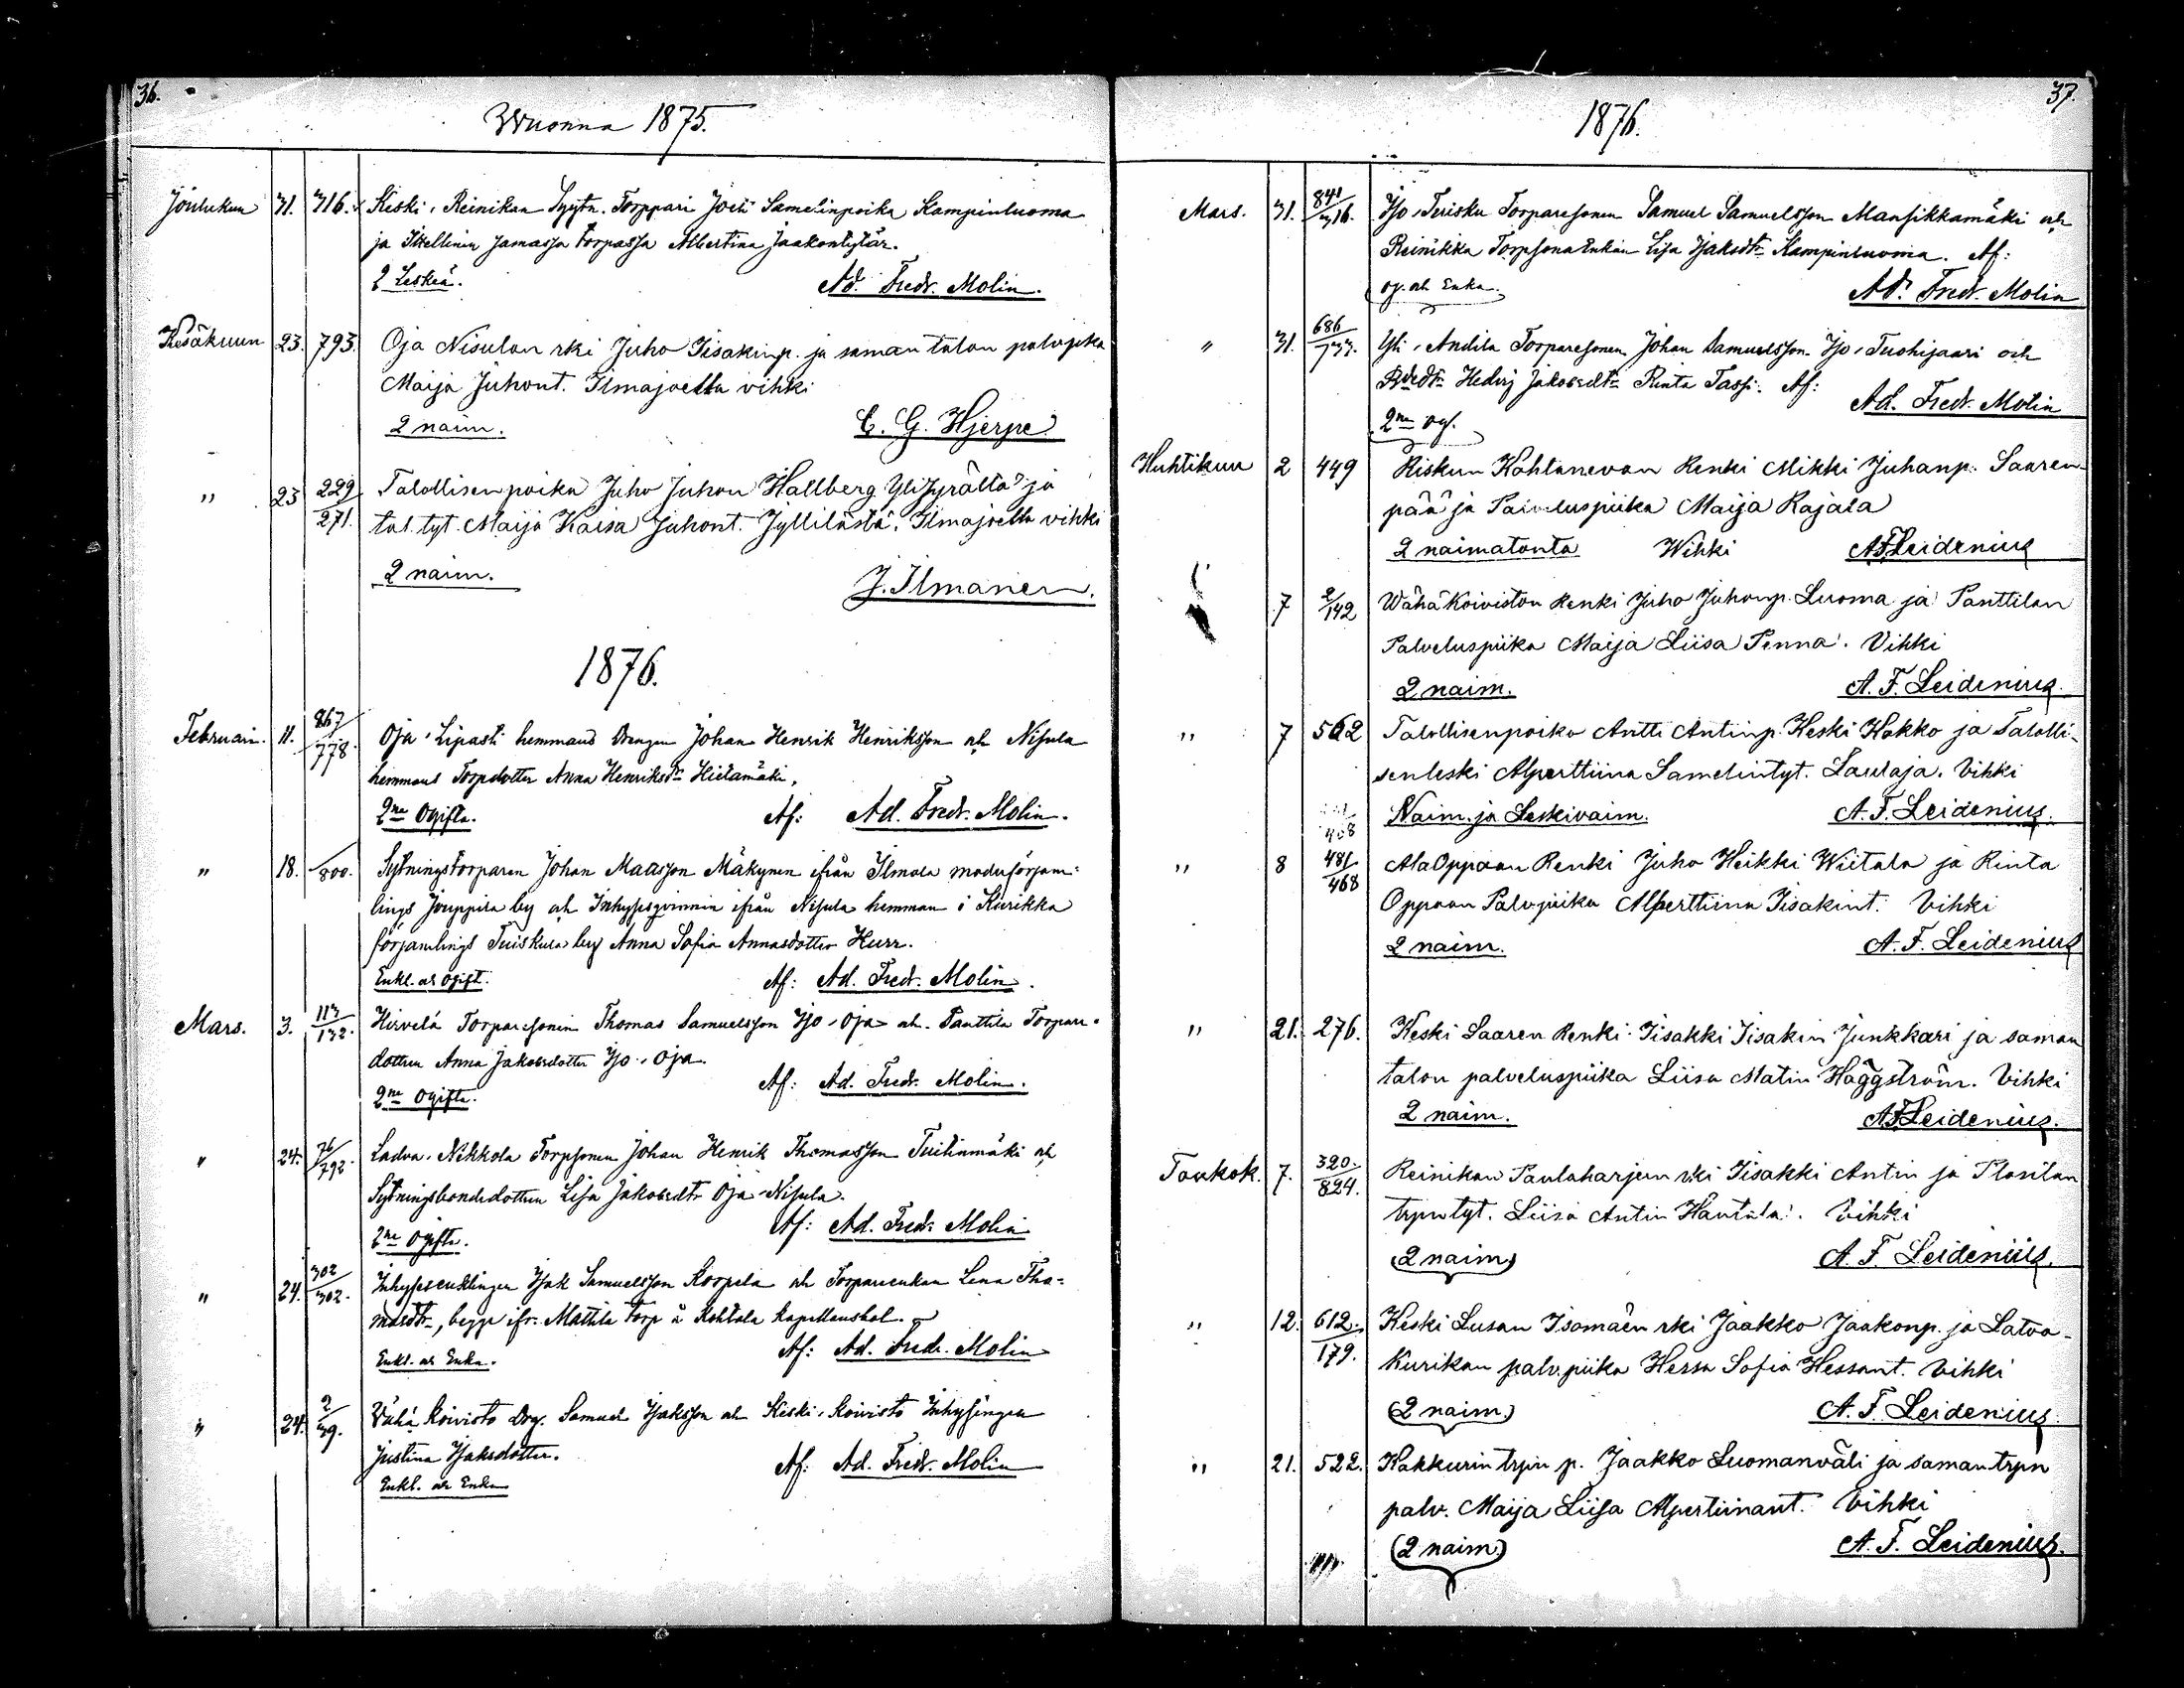 36.
Wuonna 1875.
Joulukuu 31. 316. Keski, Reinikan Syytn. Torppari Joeli Samelinpoika Kampinluoma
ja Itsellinen samassa torpassa Albertina Jaakontytär.
2 Leskeä. Ad. Fredr. Molin.
Kesäkuun 23. 793. Oja Nisulan rki Juho Iisakinp. ja saman talon palvpiika
Maija Juhont. Ilmajoella vihki
2 naim. C. G. Hjerpe
" 23 229/271. Talollisenpoika Juho Juhon Hallberg YliJyrältä ja
tal. tyt. Maija Kaisa Juhont. Jyllilästä, Ilmajoella vihki
2 naim. J. Ilmanen.
1876.
Februari. 11. 867/778. Oja, Lipasti hemmans Drengen Johan Henrik Henriksson och Nisula
hemmans Torpdotter Anna Henriksdr Hietamäki.
2ne Ogifta. Af: Ad. Fredr. Molin.
" 18. /800. Sytningstorparen Johan Matsson Mäkynen ifrån Ilmola moderförsam-
lings Jouppila by och Inhyseqvinnin ifrån Nisula hemman i Kurikka
församlings Tuiskula by Anna Sofia Annasdotter Hurr.
Enkl. och Ogift. Af: Ad. Fredr. Molin.
Mars. 3. 113/132. Hirvelä Torparesonen Thomas Samuelsson Iso, Oja och Panttila Torpare-
dottren Anna Jakobsdotter Iso, Oja.
2ne Ogifta. Af: Ad. Fredr. Molin.
" 24. 76/792. Ladva, Nikkola Torpsonen Johan Henrik Thomasson Tuilinmäki och
Sytningsbondedottren Lisa Jakobsdtr Oja, Nisula.
2ne Ogifta. Af: Ad. Fredr. Molin
" 24. 302/302. Inhysesenklingen Isak Samuelsson Korpela och Torpareenkan Lena Tho-
masdtr, begge ifr. Mattila torp å Kohtala kapellansbol.
Enkl. och Enka. Af: Ad. Fredr. Molin
" 24. 2/39. Vähä, Koivisto Drg. Samuel Isaksson och Keski, Koivisto Inhysingen
Justina Isaksdotter.
Enkl. och Enka Af: Ad. Fredr. Molin
37.
1876.
Mars. 31. 841/316. Iso, Terisku Torparesonen Samuel Samuelsson Mansikkamäki och
Reinikka TorpsonaEnkan Lisa Isaksdtr Kampinluoma. Af:
og. och Enka. Ad. Fredr. Molin
" 31. 686/733. Yli, Andila Torparesonen Johan Samuelsson Iso, Tuohisaari och
Bdedtr Hedvig Jakobsdtr Rinta Tassi. Af:
2ne og. Ad. Fredr. Molin
Huhtikuu 2 449 Riskun Kohtanevan Renki Mikki Juhanp. Saaren-
pää ja Palveluspiika Maija Rajala
2 naimatonta Wihki A F Leidenius
7 2/142 WähäKoiviston Renki Juho Juhonp. Luoma ja Panttilan
Palveluspiika Maija Liisa Penna. Vihki
2 naim. A. F. Leidenius.
" 7 562 Talollisenpoika Antti Antinp. Keski Kakko ja Talolli-
senleski Alperttiina Samelintyt. Laulaja. Vihki
Naim. ja Leskivaim. A. F. Leidenius.
" 8 481/468 AlaOppaan Renki Juho Heikki Wiitala ja Rinta
Oppaan Palvpiika Alperttiina Iisakint. Vihki
2 naim. A. F. Leidenius
" 21. 276. Keski Saaren Renki Iisakki Iisakin Junkkari ja saman
talon palveluspiika Liisa Matin Häggström. Vihki
2 naim. A F Leidenius.
Toukok. 7. 320./824. Reinikan Paulaharjun rki Iisakki Antin ja Plosilan
trpn tyt. Liisa Antin Hautala. Vihki
(2 naim) A. F. Leidenius.
" 12. 612./179. Keski Lusan Isomäen rki Jaakko Jaakonp. ja Latva-
Kurikan palv. piika Hessa Sofia Hessant. Vihki
(2 naim.) A. F. Leidenius
" 21. 522. Kakkurin trpn p. Jaakko Luomanväli ja saman trpn
palv. Maija Liisa Alpertiinant. Vihki
(2 naim.) A. F. Leidenius.